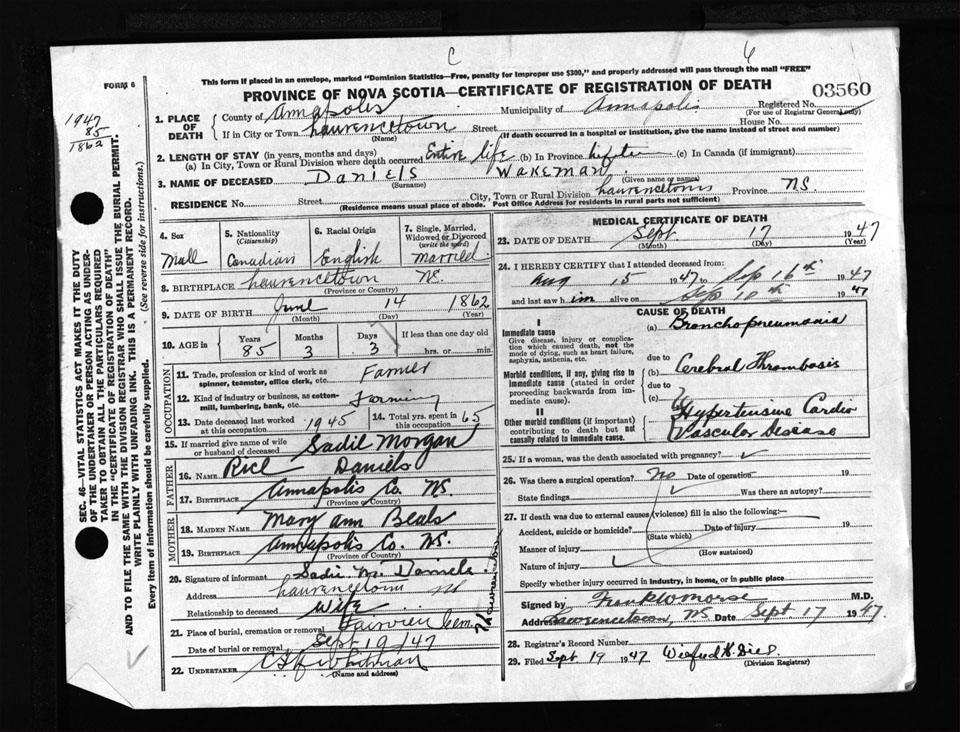 C 6
This form if placed in an envelope, marked "Dominion Statistics—Free, penalty for improper use $300," and properly addressed will pass through the mail "FREE"
FORM 6
PROVINCE OF NOVA SCOTIA—CERTIFICATE OF REGISTRATION OF DEATH
03560
1947
85
1862
1. PLACE OF DEATH
County of Annapolis Municipality of Annapolis Registered No.
(For use of Registrar General only)
If in City or Town Lawrencetown Street House No.
(Name) (If death occurred in a hospital or institution, give the name instead of street and number)
2. LENGTH OF STAY (in years, months and days)
(a) In City, Town or Rural Division where death occurred Entire life (b) In Province lifetime (c) In Canada (if immigrant)
3. NAME OF DECEASED Daniels Wakeman
(Surname) (Given name or names)
RESIDENCE No. Street City, Town or Rural Division Lawrencetown Province NS.
(Residence means usual place of abode. Post Office Address for residents in rural parts not sufficient)
4. Sex
Male
5. Nationality
(Citizenship)
Canadian
6. Racial Origin
English
7. Single, Married, Widowed or Divorced
(write the word)
Married
8. BIRTHPLACE Lawrencetown NS.
(Province or Country)
9. DATE OF BIRTH June 14 1862
(Month) (Day) (Year)
10. AGE in
Years Months Days If less than one day old
85 3 3 hrs. or min.
OCCUPATION
11. Trade, profession or kind of work as
spinner, teamster, office clerk, etc. Farmer
12. Kind of industry or business, as cotton-
mill, lumbering, bank, etc. Farming
13. Date deceased last worked
at this occupation 1945
14. Total yrs. spent in
this occupation 65
15. If married give name of wife
or husband of deceased Sadie Morgan
FATHER
16. Name Rice Daniels
17. Birthplace Annapolis Co. NS.
(Province or Country)
MOTHER
18. Maiden Name Mary Ann Beals
19. Birthplace Annapolis Co. NS.
(Province or Country)
20. Signature of informant Sadie M. Daniels
Address Lawrencetown NS
Relationship to deceased Wife
21. Place of burial, cremation or removal Fairview Cem.
Lawrencetown
Date of burial or removal Sept 19/47
22. Undertaker Whitman
(Name and address)
MEDICAL CERTIFICATE OF DEATH
23. DATE OF DEATH Sept. 17 1947
(Month) (Day) (Year)
24. I HEREBY CERTIFY that I attended deceased from:
Aug 15 1947 to Sep 16th 1947
and last saw h im alive on Sep 16th 1947
CAUSE OF DEATH
I
Immediate cause
Give disease, injury or complica-
tion which caused death, not the
mode of dying, such as heart failure,
asphyxia, asthenia, etc.
(a) Bronchopneumonia
due to
Morbid conditions, if any, giving rise to
immediate cause (stated in order
proceeding backwards from im-
mediate cause).
(b) Cerebral Thrombosis
due to
(c)
II
Other morbid conditions (if important)
contributing to death but not
causally related to immediate cause.
Hypertensive Cardio
Vascular Disease
25. If a woman, was the death associated with pregnancy?
26. Was there a surgical operation? No Date of operation 19
State findings Was there an autopsy?
27. If death was due to external causes (violence) fill in also the following:—
Accident, suicide or homicide? Date of injury 19
(State which)
Manner of injury
(How sustained)
Nature of injury
Specify whether injury occurred in industry, in home, or in public place
Signed by Frank W Morse M.D.
Address Lawrencetown, NS Date Sept 17 1947
28. Registrar's Record Number
29. Filed Sept 19 1947 Wilfred
(Division Registrar)
SEC. 46—VITAL STATISTICS ACT MAKES IT THE DUTY
OF THE UNDERTAKER OR PERSON ACTING AS UNDER-
TAKER TO OBTAIN ALL THE PARTICULARS REQUIRED
IN THE "CERTIFICATE OF REGISTRATION OF DEATH"
AND TO FILE THE SAME WITH THE DIVISION REGISTRAR WHO SHALL ISSUE THE BURIAL PERMIT.
WRITE PLAINLY WITH UNFADING INK. THIS IS A PERMANENT RECORD.
Every item of information should be carefully supplied. (See reverse side for instructions.)